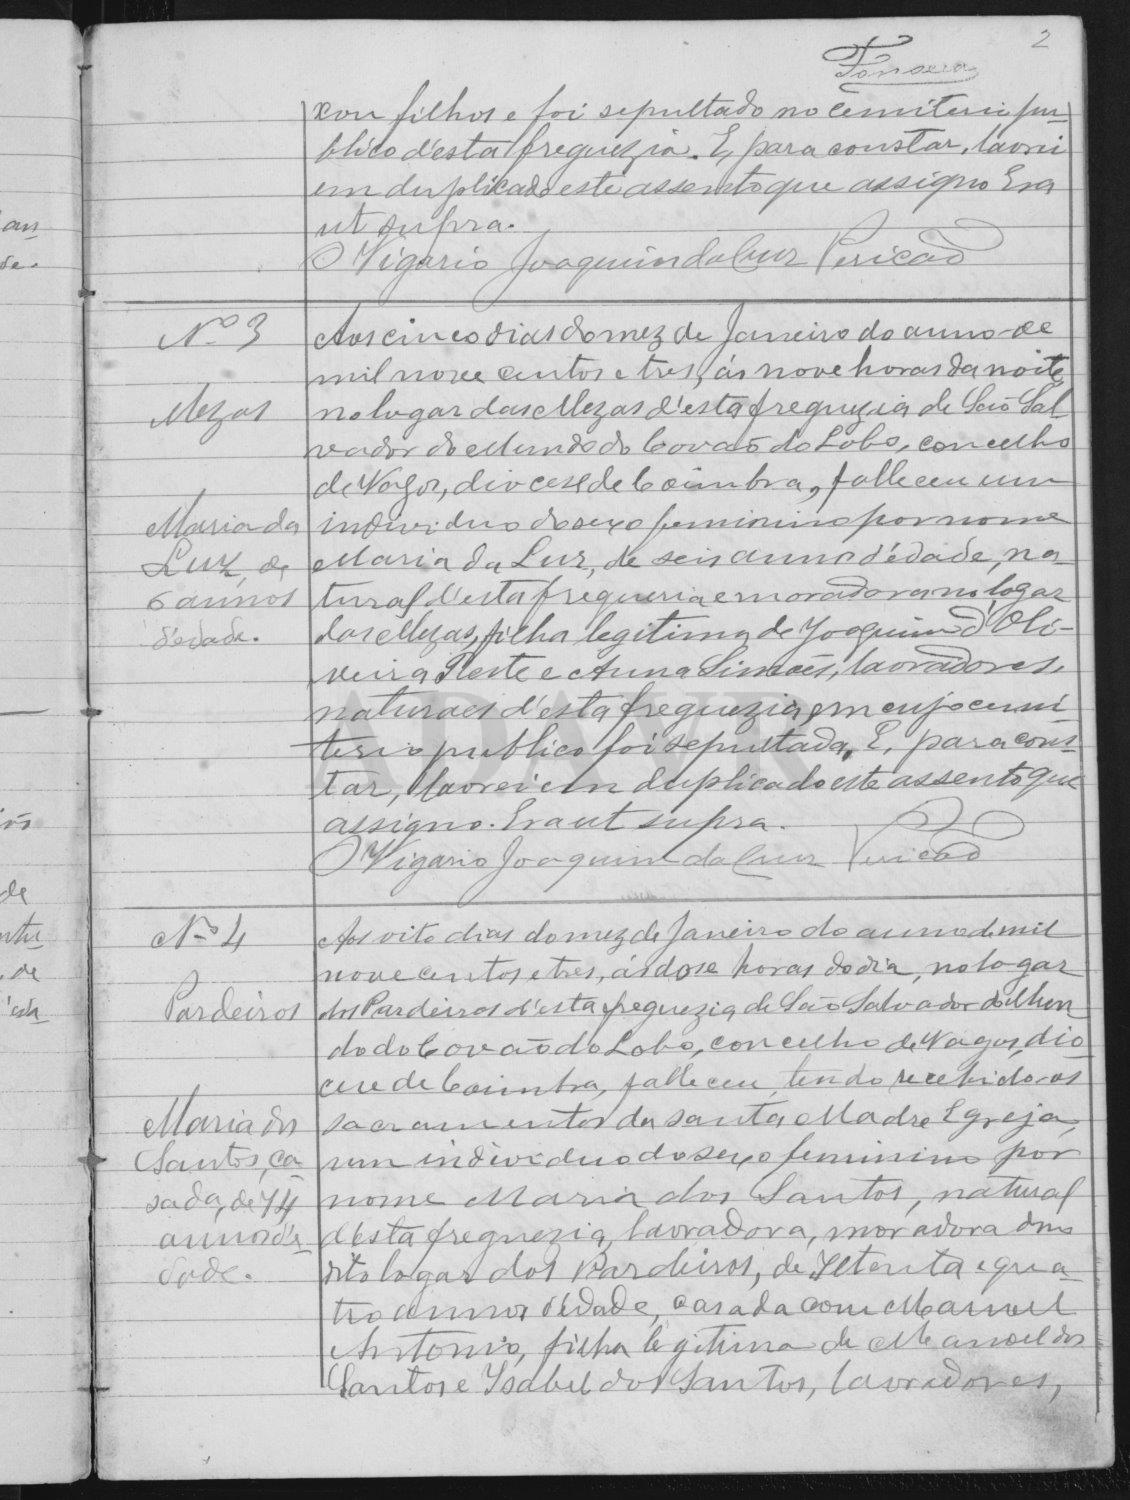 2
Fonseca
xou filhos e foi sepultado no cemiterio pu-
blico d'esta freguezia. E, para constar, lavrei
em duplicado este assento que assigno Era
ut supra.
O Vigario Joaquim da Cruz Pericão
Nº 3
Mezas
Maria da
Luz, de
6 annos
d'edade.
Aos cinco dias do mez de Janeiro do anno de
mil nove centos e tres, ás nove horas da noite
no logar das Mezas d'esta freguezia de São Sal-
vador do Mundo do Covão do Lobo, concelho
de Vagos, diocese de Coimbra, falleceu um
individuo do sexo feminino por nome
Maria da Luz, de seis annos d'edade, na-
tural d'esta freguezia e moradora no logar
das Mezas, filha legitima de Joaquim d'Oli-
veira e Anna Simões, lavradores,
naturaes d'esta freguezia, em cujo cemi-
terio publico foi sepultada. E, para cons-
tar, lavrei em duplicado este assento que
assigno. Era ut supra.
O Vigario Joaquim da Cruz Pericão
Nº 4
Pardeiros
Maria dos
Santos, ca-
sada, de 74
annos d'e-
dade.
Aos oito dias do mez de Janeiro do anno de mil
nove centos e tres, ás dose horas do dia, no logar
dos Pardeiros d'esta freguezia de São Salvador do Mun
do do Covão do Lobo, concelho de Vagos, dio-
cese de Coimbra, falleceu, tendo recebido os
sacramentos da Santa Madre Egreja,
um individuo do sexo feminino por
nome Maria dos Santos, natural
d'esta freguezia, lavradora, moradora no
dito logar dos Pardeiros, de setenta e qua-
tro annos d'edade, casada com Manuel
Antonio, filha legitima de Manoel dos
Santos e Ysabel dos Santos, lavradores,
ADAVR